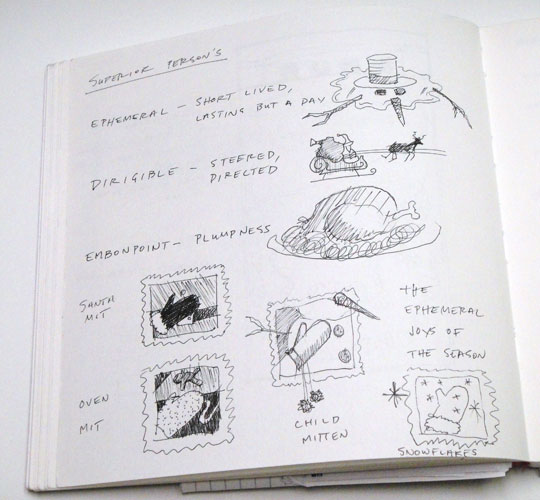 SUPERIOR PERSON'S
EPHEMERAL – SHORT LIVED,
LASTING BUT A DAY
DIRIGIBLE – STEERED,
DIRECTED
EMBONPOINT – PLUMPNESS
SANTA
MIT
OVEN
MIT
CHILD
MITTEN
THE
EPHEMERAL
JOYS OF
THE SEASON
SNOWFLAKES